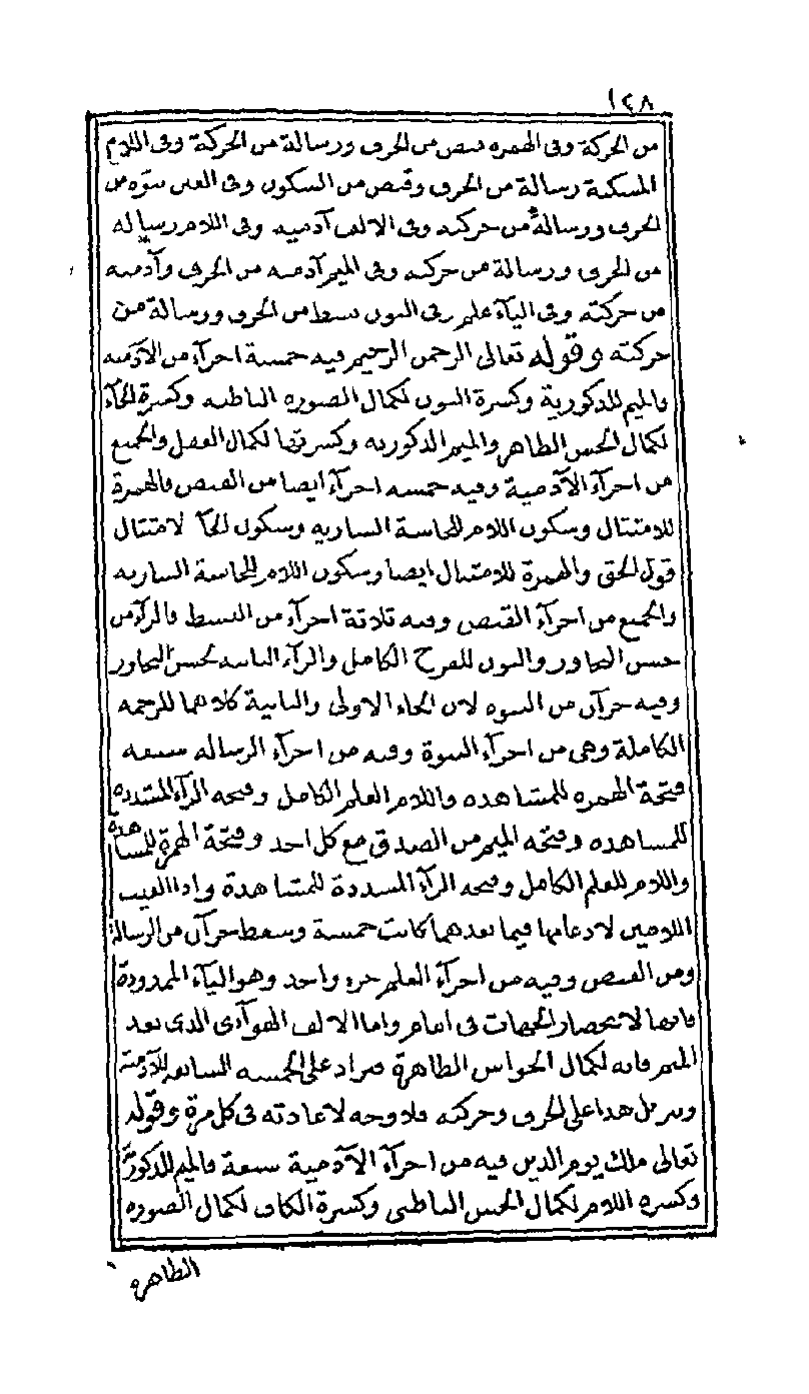 ١٢٨
من الحركة وفى الهمزه قبض من الحرف ورسالة من الحركة وفى اللام
المسكنة رسالة من الحرف وقبض من السكون وفى العين نبوّه من
الحرف ورسالة من حركته وفى الالف آدميه وفى اللام رساله
من الحرف ورسالة من حركته وفى الميم آدميه من الحرف وآدميه
من حركته وفى اليآء علم وفى النون بسط من الحرف ورسالة من
حركته وقوله تعالى الرحمن الرحيم فيه خمسة اجزآء من الآدميه
فالميم للذكورية وكسرة النون لكمال الصوره الباطنه وكسرة الحآء
لكمال الحس الظاهر والميم الذكوريه وكسرتها لكمال العقل والجميع
من اجزآء الآدمية وفيه خمسه اجزآء ايضا من القبض فالهمزة
للامتثال وسكون اللام للحاسة الساريه وسكون الحآ لامتثال
قول الحق والهمزة للامتثال ايضا وسكون اللام للحاسة الساريه
والجميع من اجزآء القبض وفيه ثلاثة اجزآء من البسط فالرآء من
حسن التجاور والنون للفرح الكامل والرآء الثانيه لحسن التجاور
وفيه جزآن من النبوه لان الحاء الاولى والثانية كلاهما للرحمه
الكاملة وهى من اجزآء النبوة وفيه من اجزآء الرساله سبعه
فتحة الهمزه للمشاهده واللام العلم الكامل وفتحه الرآء المشدده
للمشاهده وفتحه الميم من الصدق مع كل احد وفتحة الهمزة للمشاهدة
واللام للعلم الكامل وفتحه الرآء المشددة للمشاهدة واذا الغيت
اللامين لادغامها فيما بعدهما كانت خمسة وسقط جزآن من الرسالة
ومن القبض وفيه من اجزآء العلم جزء واحد وهو اليآء الممدودة
فانها لانحصار الجهات فى امام واما الالف الهوآئى الذى بعد
الميم فانه لكمال الحواس الظاهرة فيزاد على الخمسه السابقه للآدمية
هذا على الحرف وحركته فلا وجه لاعادته فى كل مرة وقوله
تعالى ملك يوم الدين فيه من اجزآء الآدمية سبعة فالميم للذكورية
وكسره اللام لكمال الحس الباطنى وكسرة الكاف لكمال الصوره
الظاهره